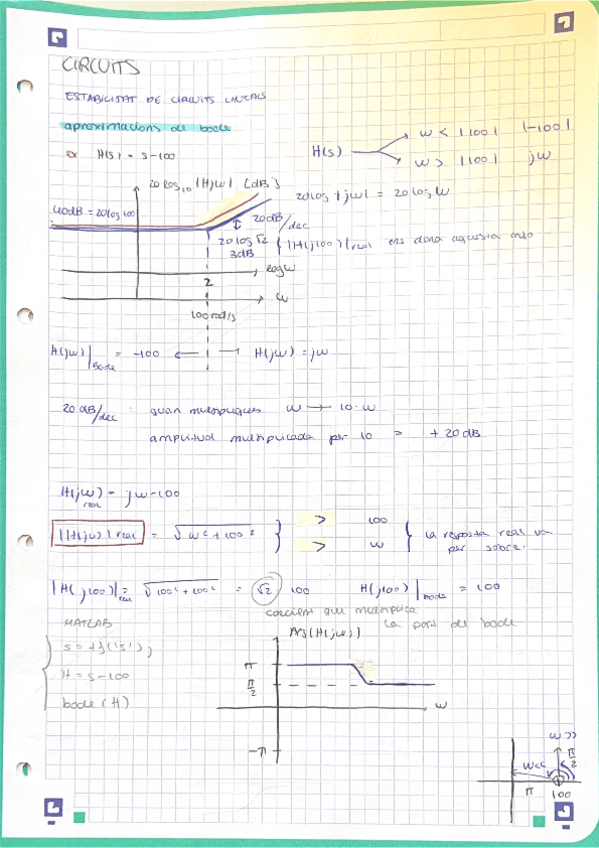 CIRCUITS
ESTABILITAT DE CIRCUITS LINEALS
aproximacions de bode
ex H(s) = s-100
H(s) w < |100| |-100|
w > |100| jw
20 log10 |H(jw)| [dB]
20 log |jw| = 20 log w
40dB = 20log 100
20dB/dec
20 log √2
3dB
|H(j100)|real ens dona aquesta
log w
2
w
100 rad/s
H(jw)|Bode = -100 ← | → H(jw) = jw
20 dB/dec : quan multipliques w → 10·w
amplitud multiplicada per 10 = + 20 dB
H(jw)real = jw-100
|H(jw)| real = √w²+100² } > 100
> w } la resposta real va per sobre.
|H(j100)|real = √100²+100² = √2 100 H(j100)|bode = 100
que multiplica
la part de bode
MATLAB
s = tf('s');
H = s-100
bode (H)
Arg(H(jw))
π
π/2
w
-π
w>>
π/2
w<<
π 100